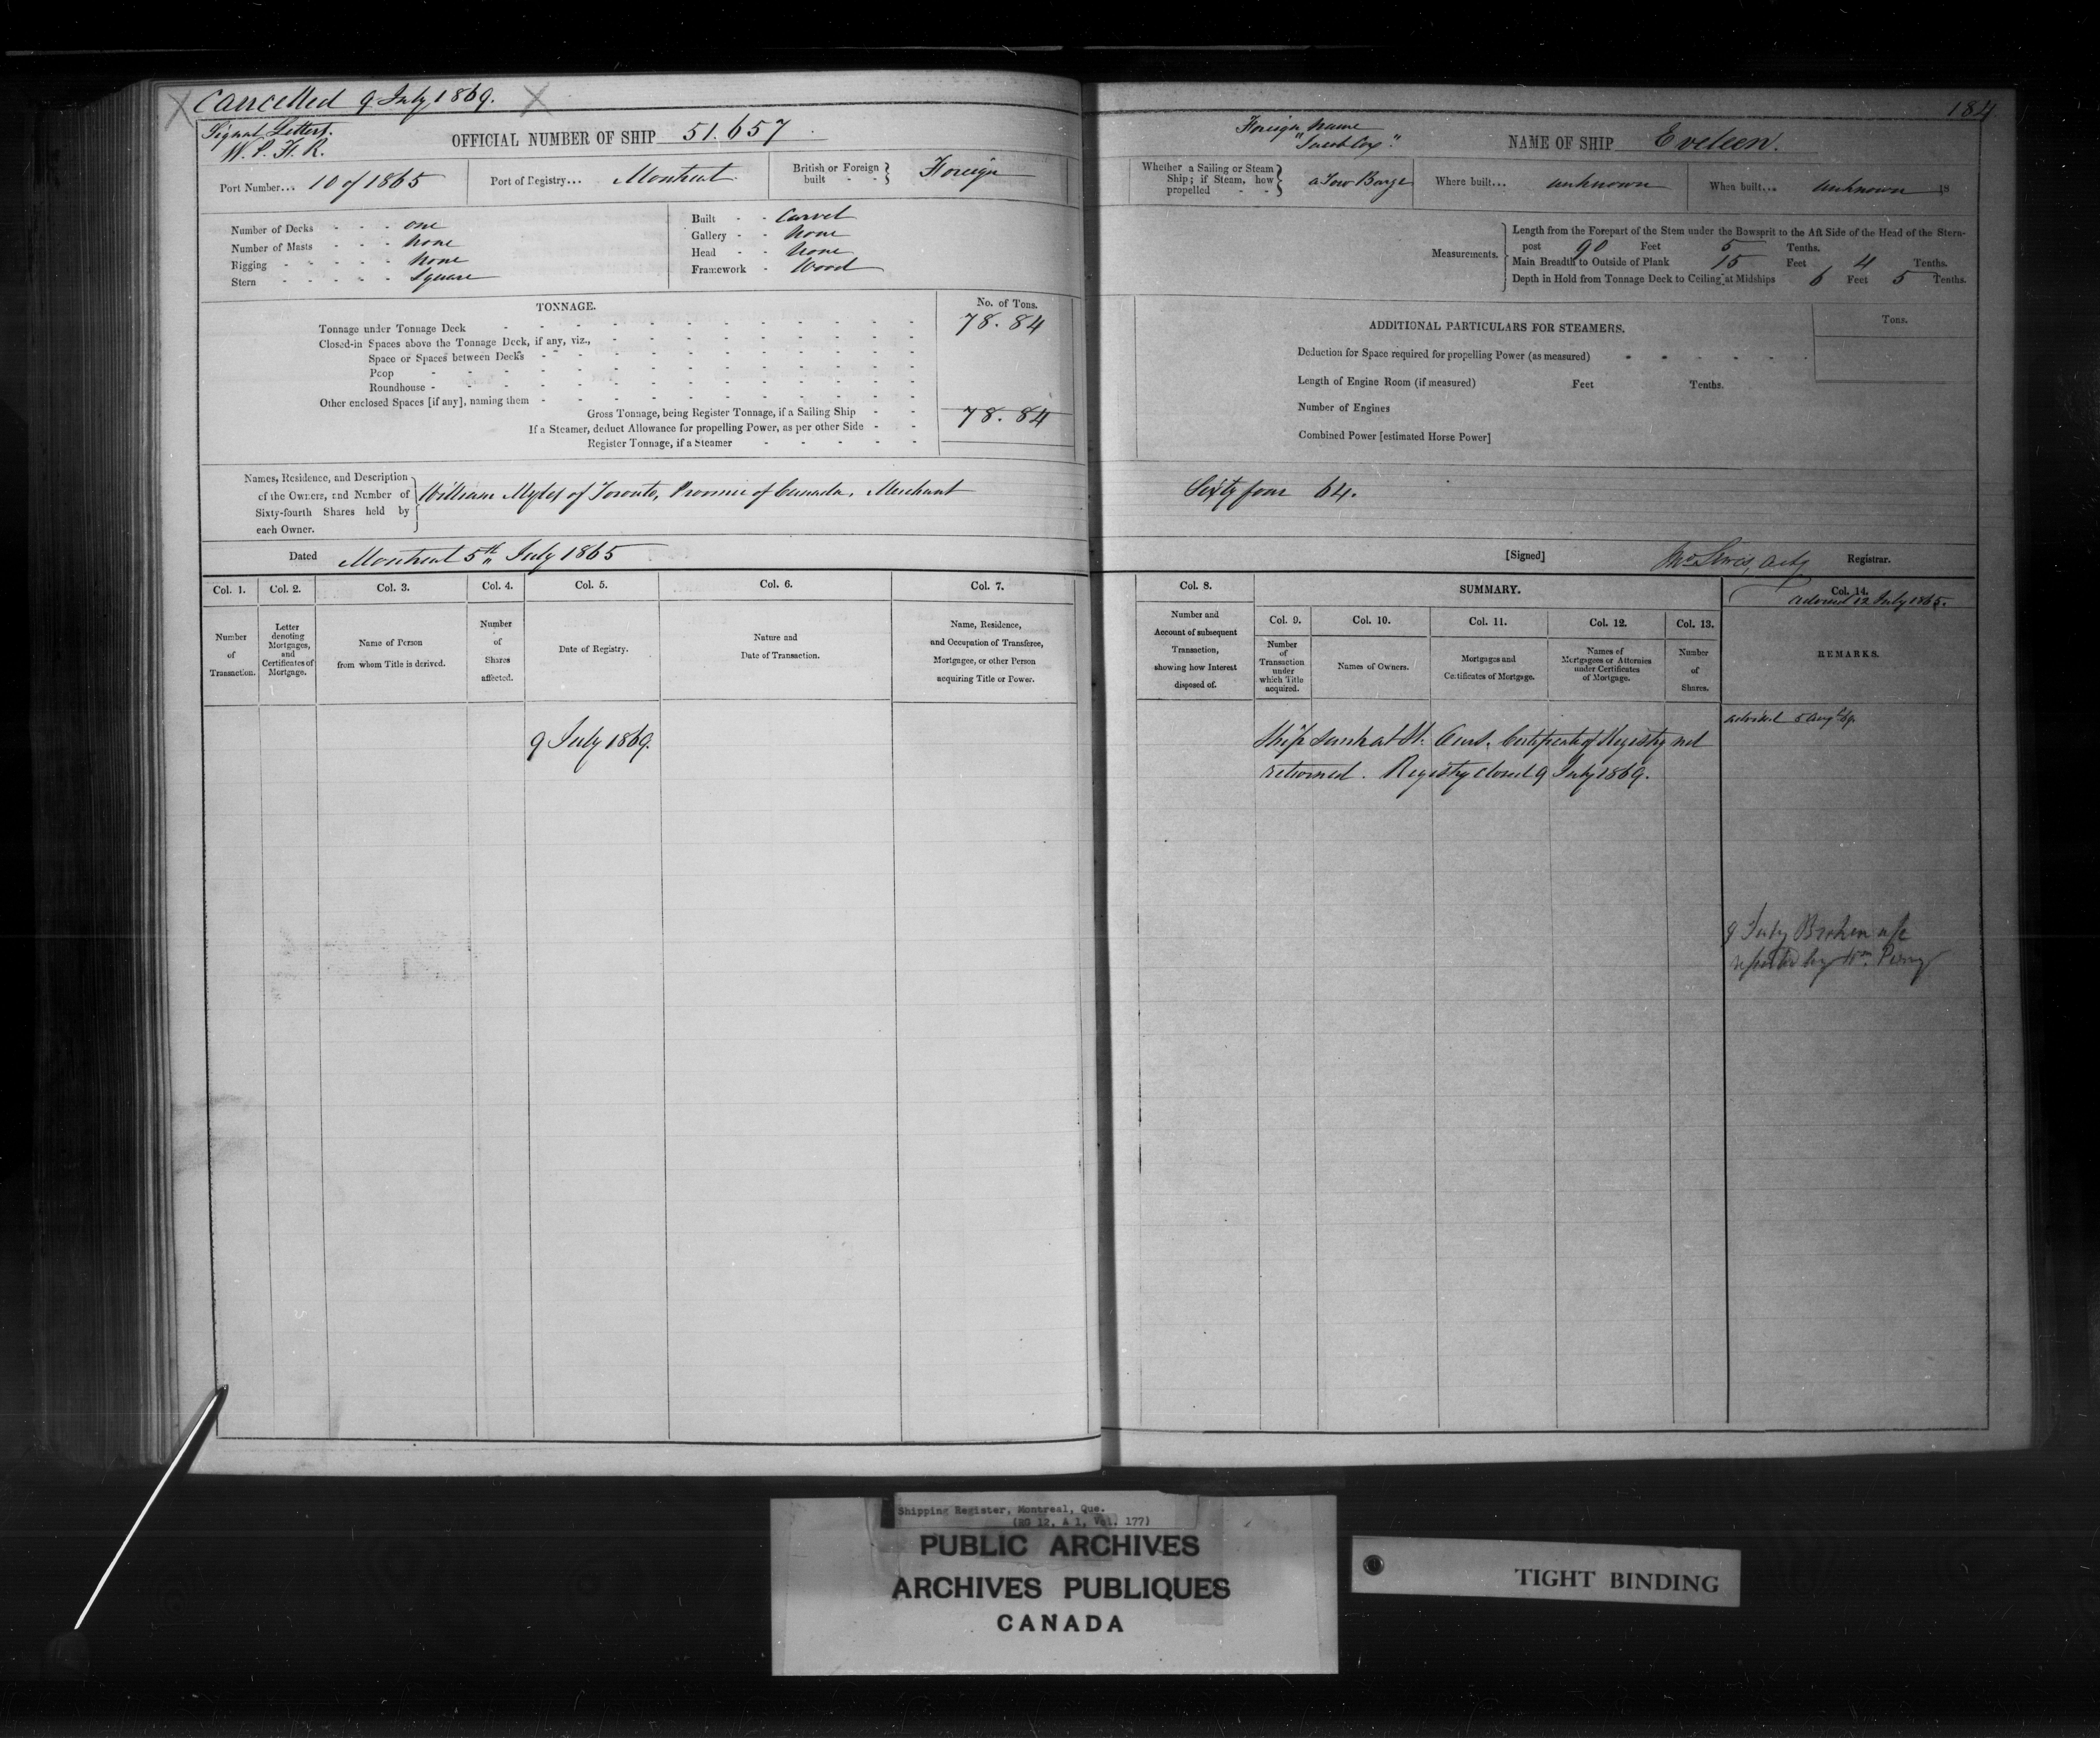 Cancelled 9 July 1869.
184
Signal Letters.
W. P. H. R.
OFFICIAL NUMBER OF SHIP 51.657
Port Number... 10 of 1865
Port of Registry... Montreal
British or Foreign built Foreign
Number of Decks one
Number of Masts None
Rigging None
Stern Square
Built Carvel
Gallery None
Head None
Framework Wood
TONNAGE.
No. of Tons.
Tonnage under Tonnage Deck 78.84
Closed-in Spaces above the Tonnage Deck, if any, viz.,
Space or Spaces between Decks
Poop
Roundhouse
Other enclosed Spaces [if any], naming them
Gross Tonnage, being Register Tonnage, if a Sailing Ship 78.84
If a Steamer, deduct Allowance for propelling Power, as per other Side
Register Tonnage, if a Steamer
Foreign Name
NAME OF SHIP Eveleen.
Whether a Sailing or Steam Ship; if Steam, how propelled a Tow Barge
Where built... unknown
When built... unknown 18
Measurements.
Length from the Forepart of the Stem under the Bowsprit to the Aft Side of the Head of the Stern-
post 90 Feet 5 Tenths.
Main Breadth to Outside of Plank 15 Feet 4 Tenths.
Depth in Hold from Tonnage Deck to Ceiling at Midships 6 Feet 5 Tenths.
ADDITIONAL PARTICULARS FOR STEAMERS.
Tons.
Deduction for Space required for propelling Power (as measured)
Length of Engine Room (if measured) Feet Tenths.
Number of Engines
Combined Power [estimated Horse Power]
Names, Residence, and Description
of the Owners, and Number of
Sixty-fourth Shares held by
each Owner.
William Myles of Toronto, Province of Canada, Merchant
Sixty four 64.
Dated Montreal 5th July 1865
[Signed] Jno Lewis, Actg Registrar.
Col. 1.
Number
of
Transaction.
Col. 2.
Letter
denoting
Mortgages,
and
Certificates of
Mortgage.
Col. 3.
Name of Person
from whom Title is derived.
Col. 4.
Number
of
Shares
affected.
Col. 5.
Date of Registry.
Col. 6.
Nature and
Date of Transaction.
Col. 7.
Name, Residence,
and Occupation of Transferee,
Mortgagee, or other Person
acquiring Title or Power.
Col. 8.
Number and
Account of subsequent
Transaction,
showing how Interest
disposed of.
SUMMARY.
Col. 9.
Number
of
Transaction
under
which Title
acquired.
Col. 10.
Names of Owners.
Col. 11.
Mortgages and
Certificates of Mortgage.
Col. 12.
Names of
Mortgagees or Attornies
under Certificates
of Mortgage.
Col. 13.
Number
of
Shares.
Col. 14.
advised 12 July 1865.
REMARKS.
9 July 1869.
Ship sunk at St. Certificate of Registry not
returned. Registry closed 9 July 1869.
advised 5 Aug 69.
9 July Broken up
reported by Wm
Shipping Register, Montreal, Que.
(RG 12, A 1, Vol. 177)
PUBLIC ARCHIVES
ARCHIVES PUBLIQUES
CANADA
TIGHT BINDING